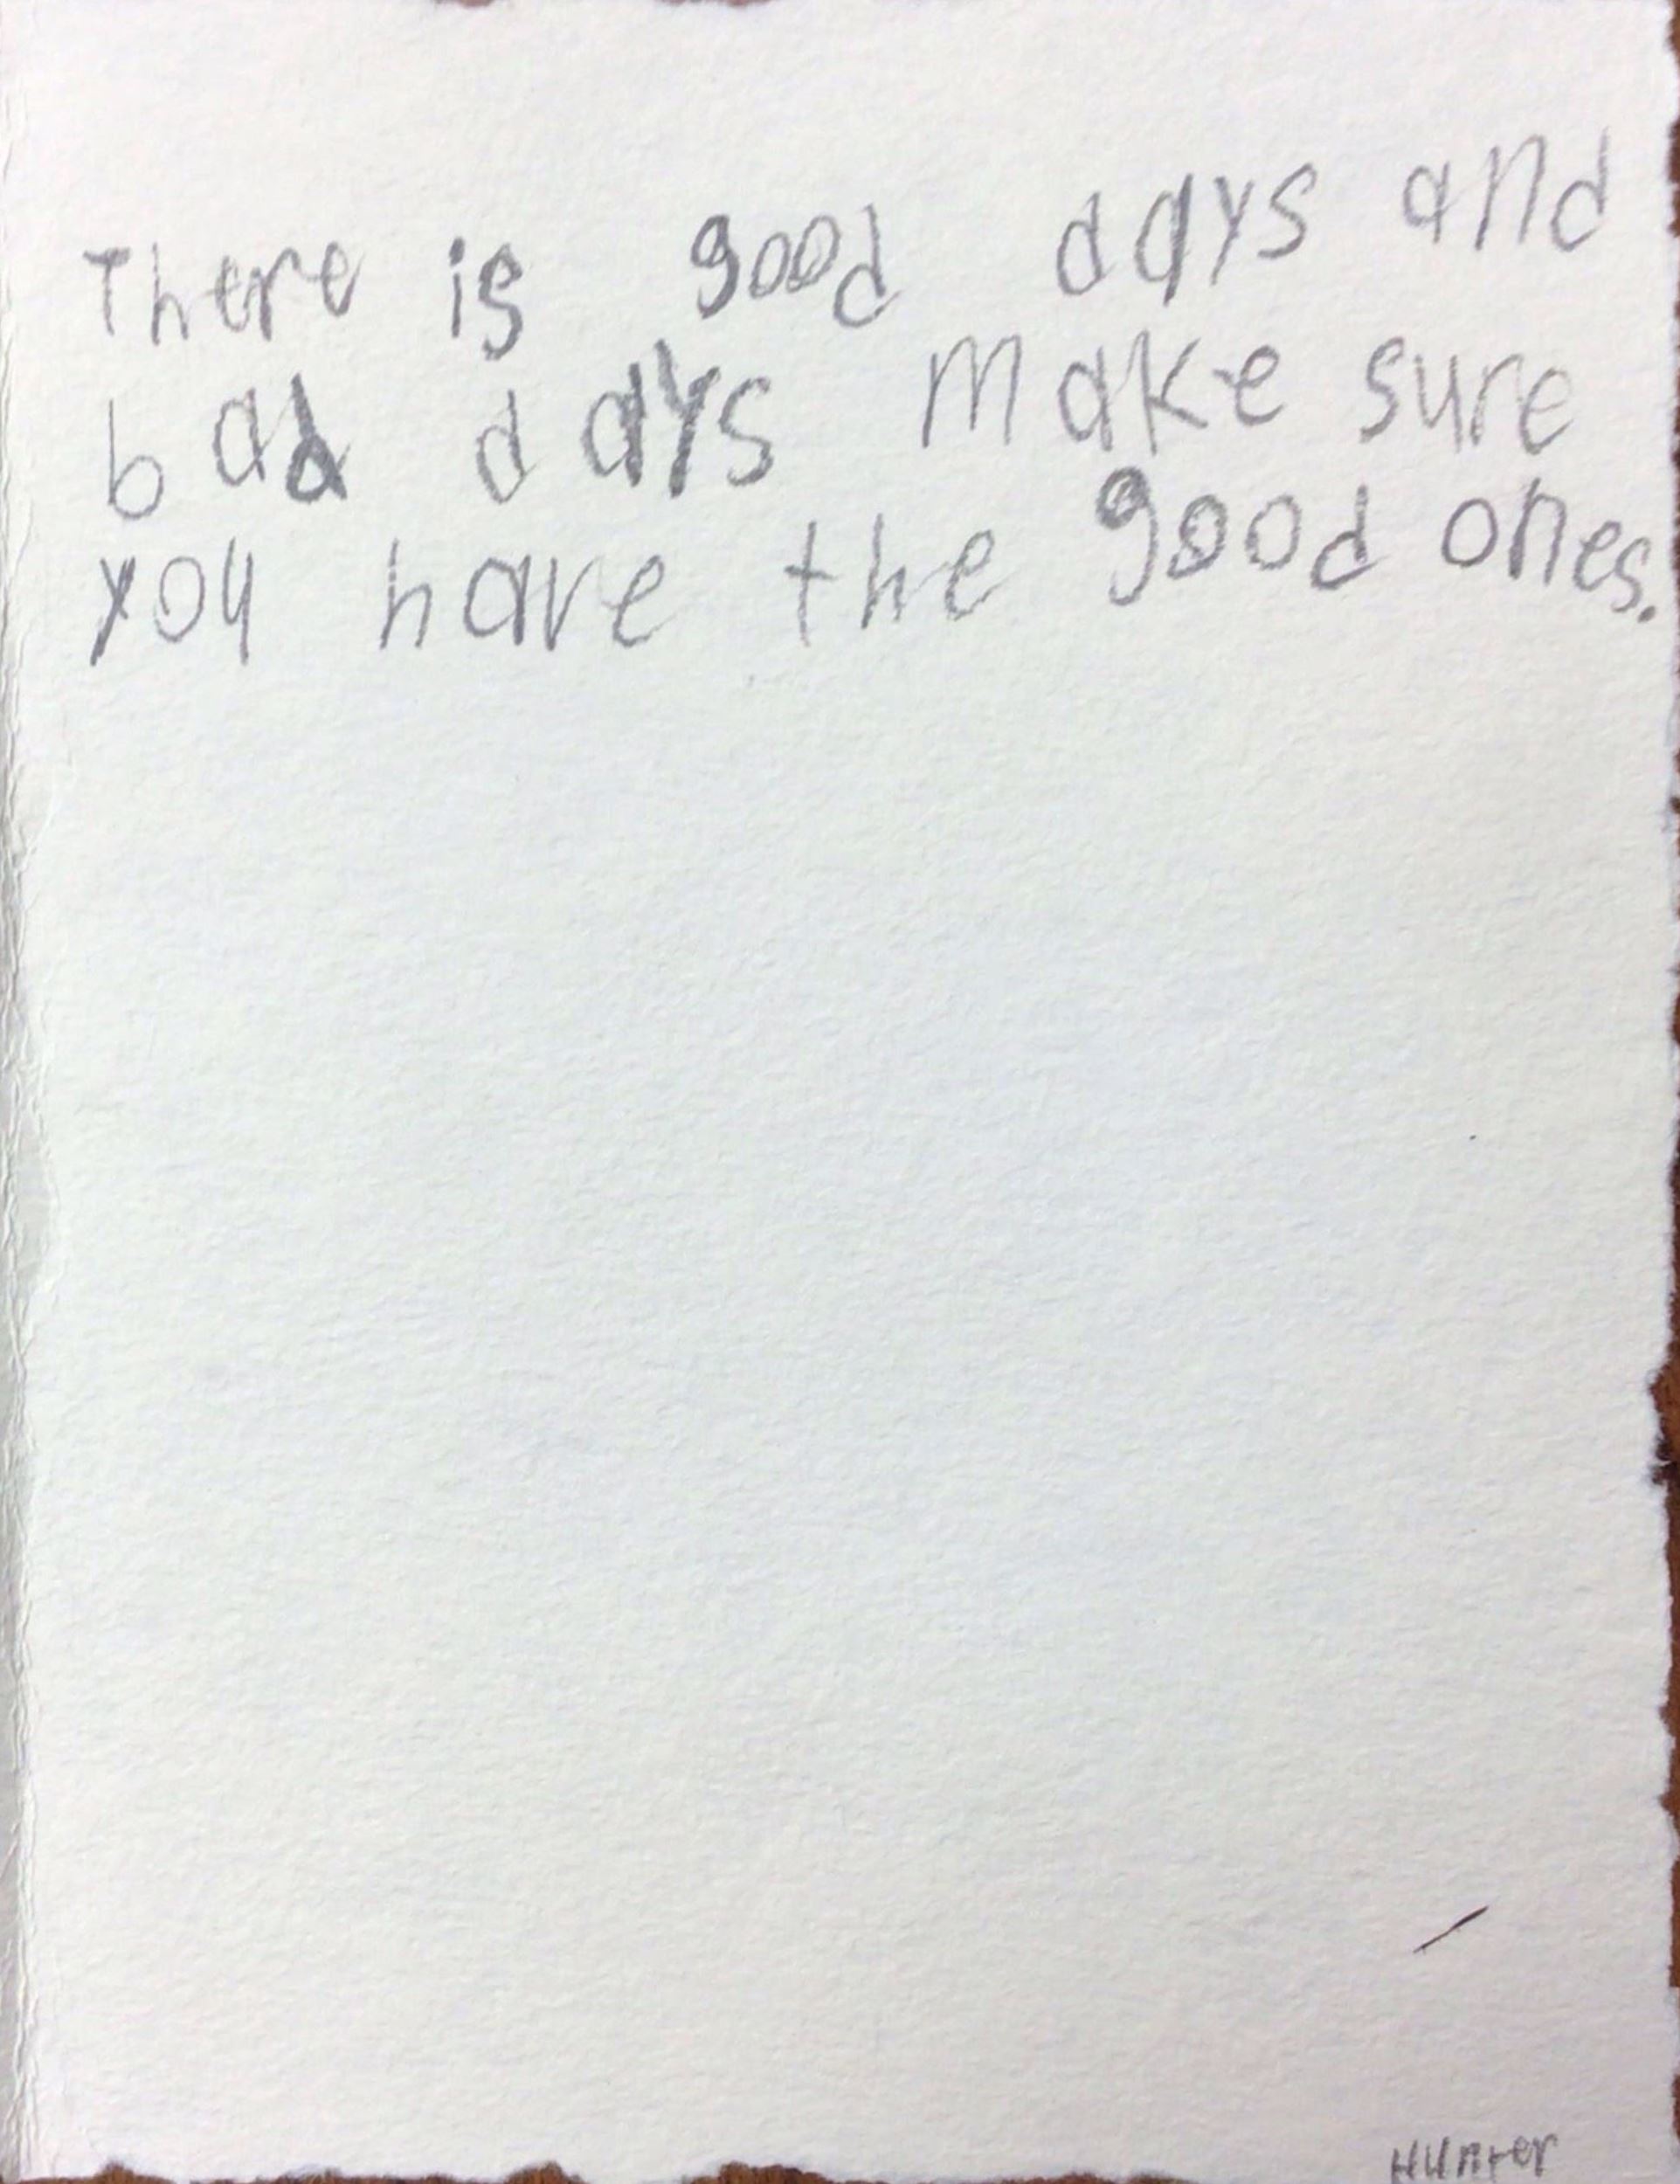 There is good days and
bad days make sure
you have the good ones.
Hunter